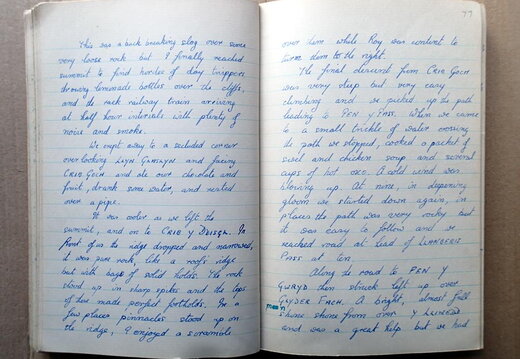 This was a back breaking slog over some
very loose rock but I finally reached
summit to find hordes of day trippers
throwing lemonade bottles over the cliffs,
and the rack railway train arriving
at half hour intervals with plenty of
noise and smoke.
We crept away to a secluded corner
overlooking LLYN GLASLYN and facing
CRIB GOCH and ate our chocolate and
fruit, drank some water, and rested
over a pipe.
It was cooler as we left the
summit, and on to CRIB Y DDISGL. In
front of us the ridge dropped and narrowed,
it was pure rock, like a roof's ridge
but with bags of solid holds. The rock
stood up in sharp spikes and the tops
of these made perfect footholds. In a
few places pinnacles stood up on
the ridge, I enjoyed a scramble
77
over them while Roy was content to
turn them to the right.
The final descent from CRIB GOCH
was very steep but very easy
climbing and we picked up the path
leading to PEN Y PASS. When we came
to a small trickle of water crossing
the path we stopped, cooked a packet of
and chicken soup, and several
cups of hot oxo. A cold wind was
blowing up. At nine, in deepening
gloom we started down again, in
places the path was very rocky but
it was easy to follow and we
reached road at head of LLANBERIS
PASS at ten.
Along the road to PEN Y
GWRYD then struck left up over
GLYDER FACH. A bright, almost full
moon shone from over Y LLIWEDD
and was a great help but we had